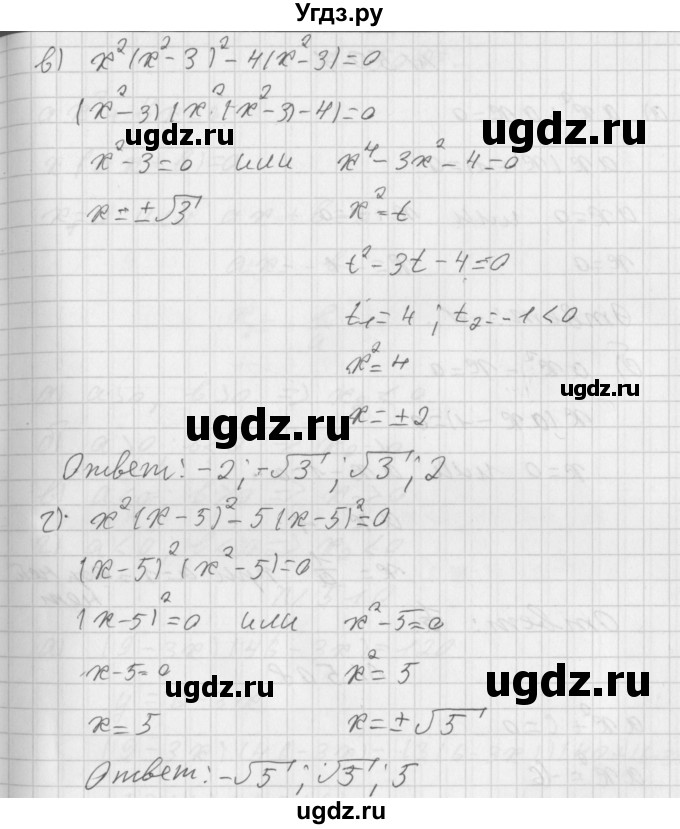 Угдз.ру
в) x²(x²-3)²-4(x²-3)=0
(x²-3)(x²(x²-3)-4)=0
ugdz.ru
ugdz.ru
x²-3=0 или x⁴-3x²-4=0
x=±√3 x²=t
t²-3t-4=0
t₁=4; t₂=-1<0
x²=4
ugdz.ru
ugdz.ru
x=±2
Ответ: -2; -√3; √3; 2
г). x²(x-5)²-5(x-5)²=0
(x-5)²(x²-5)=0
ugdz.ru
(x-5)²=0 или x²-5=0
x-5=0 x²=5
ugdz.ru
ugdz.ru
x=5 x=±√5
Ответ: -√5; √5; 5
ugdz.ru